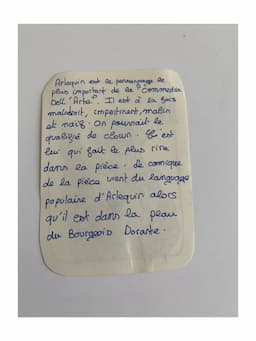 Arlequin est le personnage le
plus important de la "Commedia
Dell 'Arte". Il est à la fois
maladroit, impertinent, malin
et naïf. On pourrait le
qualifié de clown. C'est
lui qui fait le plus rire
dans la pièce. Le comique
de la pièce vient du language
populaire d'Arlequin alors
qu'il est dans la peau
du Bourgeois Dorante.